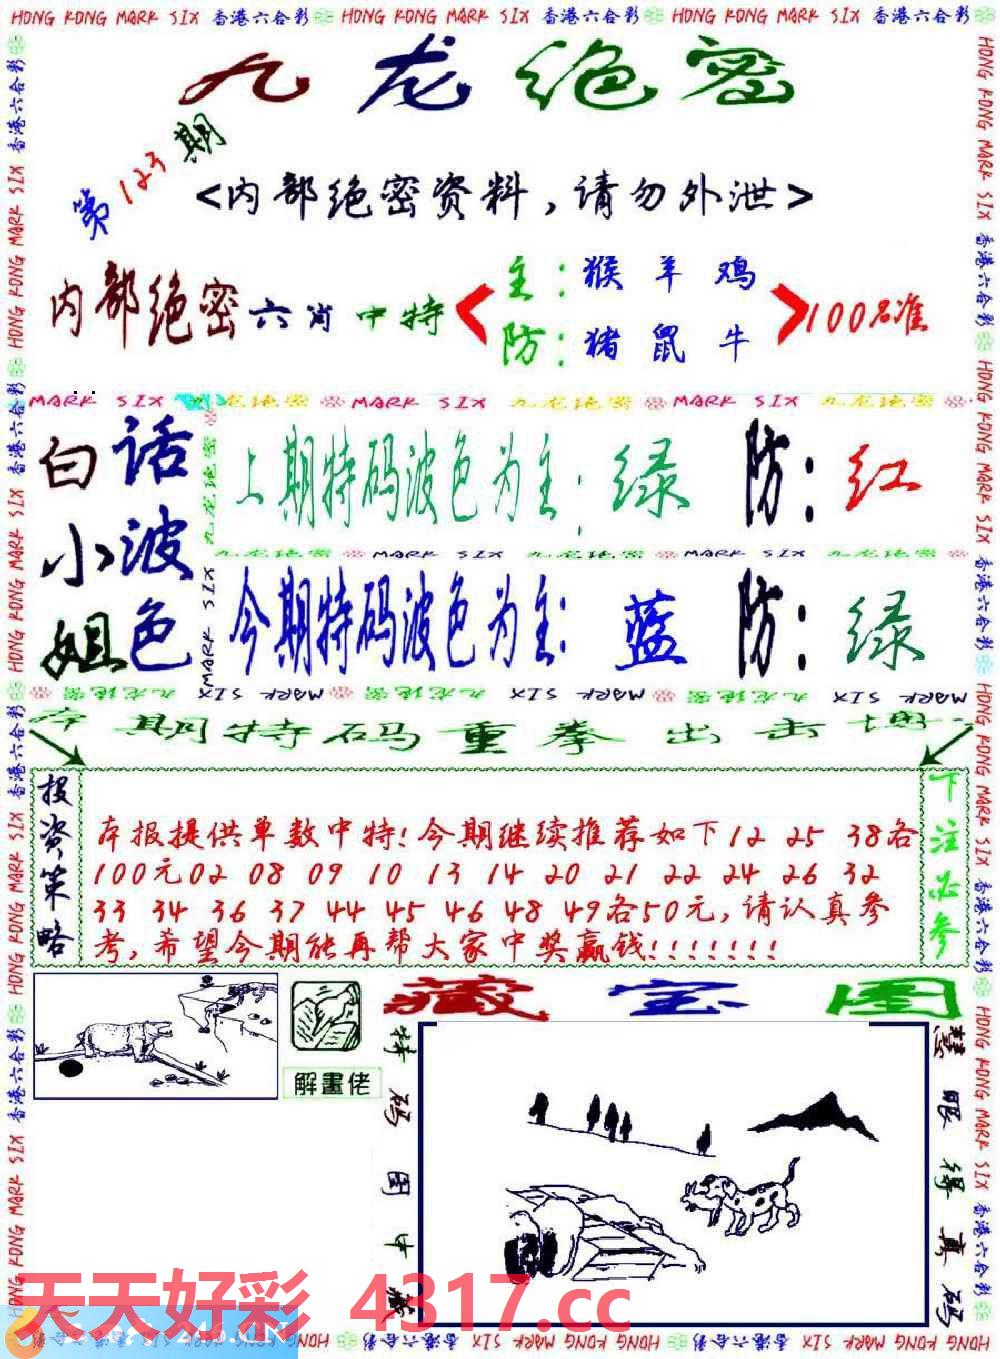 HONG KONG MARK SIX 香港六合彩 HONG KONG MARK SIX 香港六合彩 HONG KONG MARK SIX 香港六合彩
九龙绝密
第123期
<内部绝密资料,请勿外泄>
内部绝密六肖中特
主:猴 羊 鸡
防:猪 鼠 牛
100%准
MARK SIX 九龙绝密 MARK SIX 九龙绝密 MARK SIX 九龙绝密
白小姐
话波色
上期特码波色为主:绿 防:红
九龙绝密 MARK SIX 九龙绝密 MARK SIX 九龙绝密
今期特码波色为主:蓝 防:绿
本期特码重拳出击
投资策略
本报提供单数中特!今期继续推荐如下12 25 38各
100元02 08 09 10 13 14 20 21 22 24 26 32
33 34 36 37 44 45 46 48 49各50元,请认真参
考,希望今期能再帮大家中奖赢钱!!!!!!!
下注必参
藏宝图
解畫佬
特码图中藏
慧眼得真码
天天好彩 4317.cc
HONG KONG MARK SIX 香港六合彩